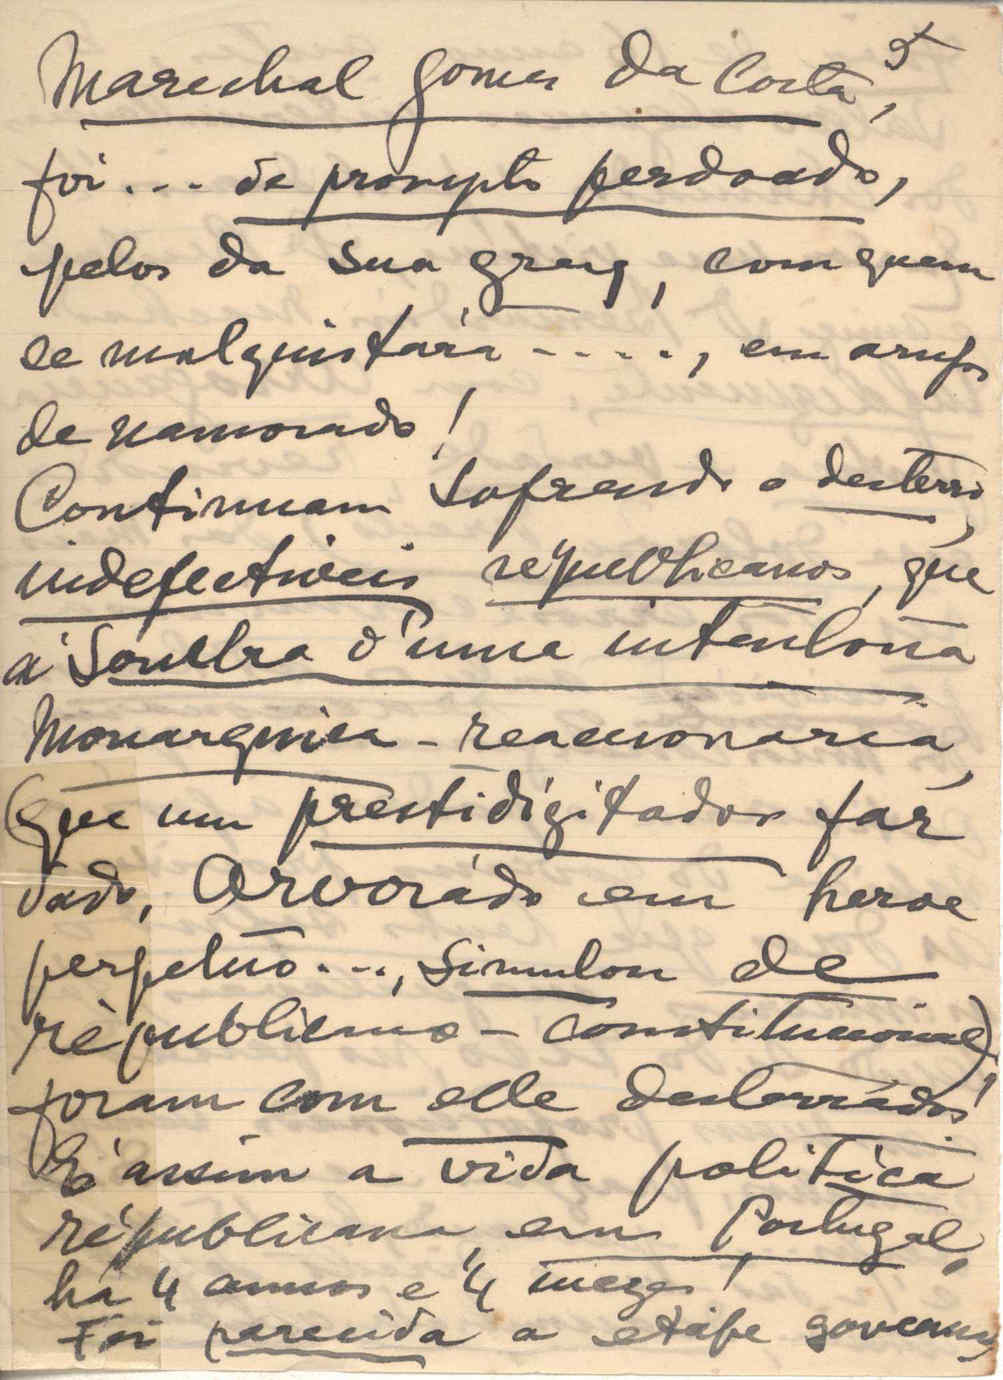 Marechal Gomes da Costa,
foi... de prompto perdoado,
pelos da sua grey, com quem
se malquistára - . . . ., em arrufos
de namorado!
Continuam sofrendo o desterro,
indefectiveis republicanos, que
á sombra d'uma intentona
Monarquica - reaccionaria,
(que um prestidigitador far
dado, Arvorado em heroe
perpetuo..., simulou de
républicano - constitucional)
foram com elle desterrados!
É assim a vida politica
républicana, em Portugal,
há 4 annos e 4 mezes!
Foi parecida a etápe governa,